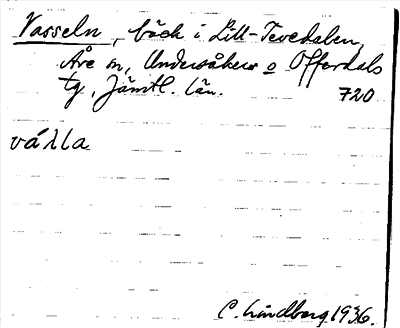 Vasseln, bäck i Lill-Tevedalen,
Åre sn, Undersåkers o Offerdals
tg, Jämtl. län. 720
C. Lindberg 1936.